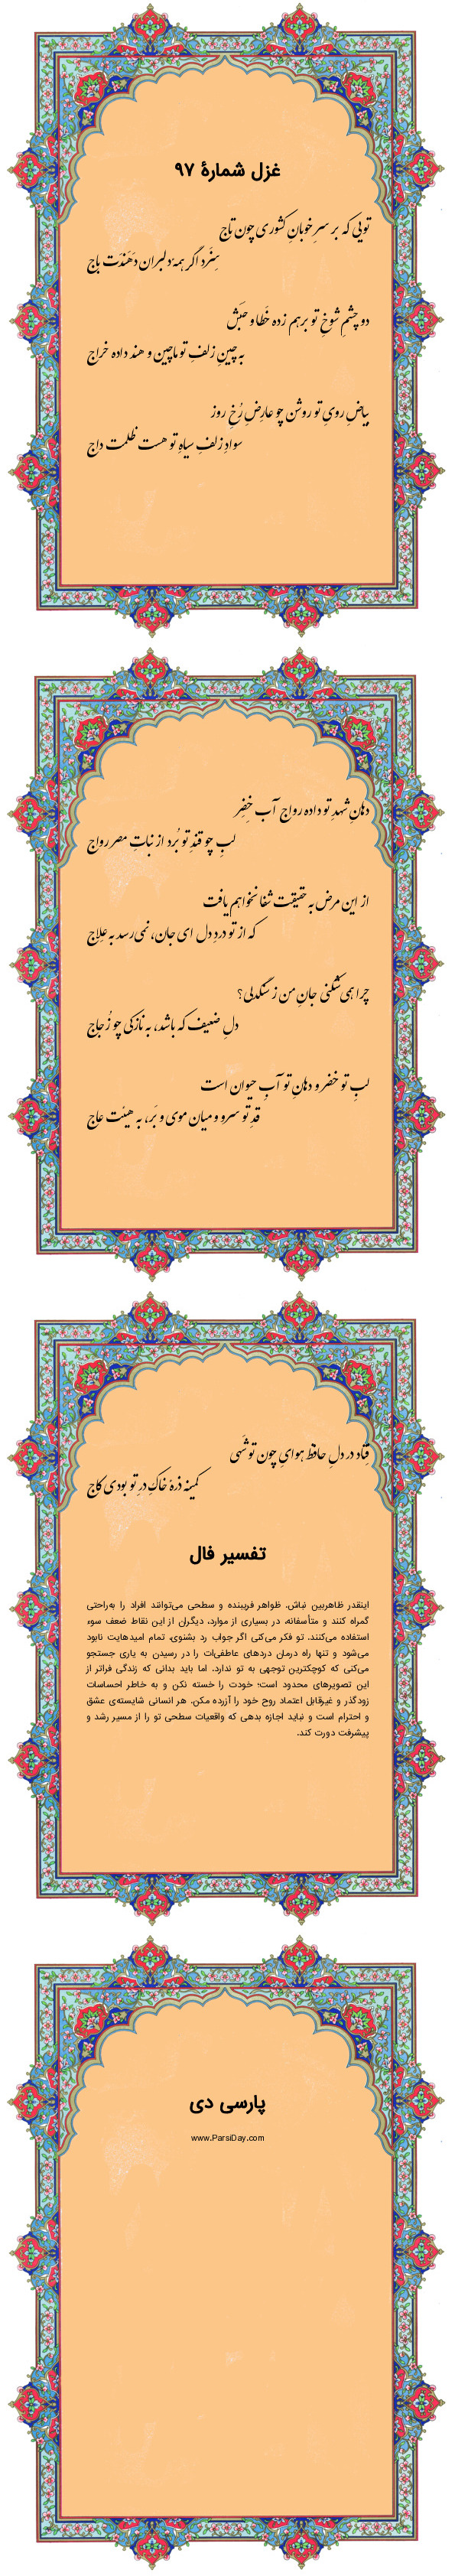 غزل شمارهٔ ۹۷
تویی که بر سرِ خوبانِ کشوری چون تاج
سِزَد اگر همهٔ دلبران دهندت باج
دو چشمِ شوخِ تو برهم زده خَطا و حَبَش
به چینِ زلفِ تو ماچین و هند داده خراج
بیاضِ رویِ تو روشن چو عارضِ رُخِ روز
سوادِ زلفِ سیاهِ تو هست ظلمت داج
دهانِ شهدِ تو داده رواج آبِ خِضِر
لبِ چو قندِ تو بُرد از نباتِ مصر رواج
از این مرض به حقیقت شفا نخواهم یافت
که از تو دردِ دل ای جان، نمی‌رسد به علاج
چرا همی‌شکنی جانِ من ز سنگدلی؟
دلِ ضعیف که باشد، به نازکی چو زُجاج
لبِ تو خضر و دهانِ تو آبِ حیوان است
قدِ تو سرو و میان موی و بَر، به هیئت عاج
فِتاد در دلِ حافظ هوایِ چون تو شَهی
کمینه ذرهٔ خاکِ درِ تو بودی کاج
تفسیر فال
اینقدر ظاهربین نباش. ظواهر فریبنده و سطحی می‌توانند افراد را به‌راحتی
گمراه کنند و متأسفانه، در بسیاری از موارد، دیگران از این نقاط ضعف سوء
استفاده می‌کنند. تو فکر می‌کنی اگر جواب رد بشنوی، تمام امیدهایت نابود
می‌شود و تنها راه درمان دردهای عاطفی‌ات را در رسیدن به یاری جستجو
می‌کنی که کوچکترین توجهی به تو ندارد. اما باید بدانی که زندگی فراتر از
این تصویرهای محدود است؛ خودت را خسته نکن و به خاطر احساسات
زودگذر و غیرقابل اعتماد روح خود را آزرده مکن. هر انسانی شایسته‌ی عشق
و احترام است و نباید اجازه بدهی که واقعیات سطحی تو را از مسیر رشد و
پیشرفت دورت کند.
پارسی دی
www.ParsiDay.com